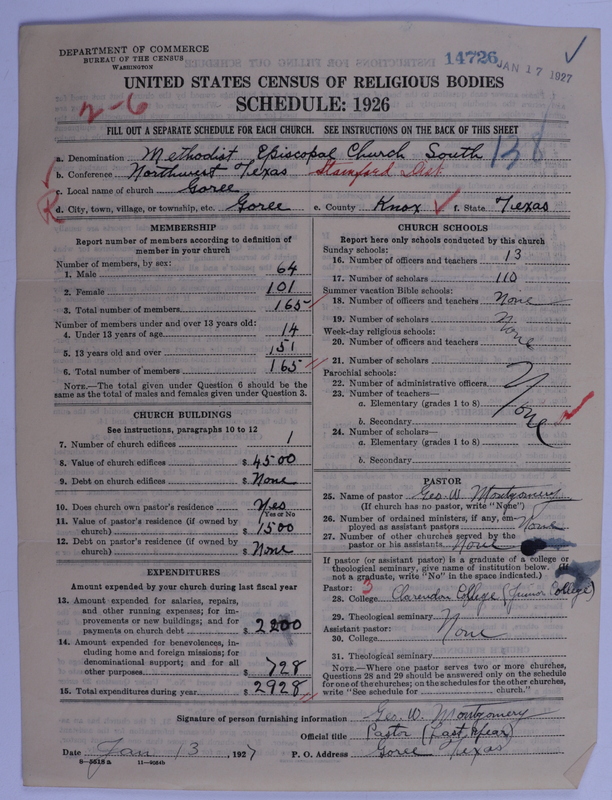 DEPARTMENT OF COMMERCE
BUREAU OF THE CENSUS
WASHINGTON
14726
JAN 17 1927
UNITED STATES CENSUS OF RELIGIOUS BODIES
2-6
SCHEDULE: 1926
FILL OUT A SEPARATE SCHEDULE FOR EACH CHURCH. SEE INSTRUCTIONS ON THE BACK OF THIS SHEET
a. Denomination Methodist Episcopal Church South 138
b. Conference Northwest Texas Stamford Dist.
c. Local name of church Goree
R
d. City, town, village, or township, etc. Goree e. County Knox f. State Texas
MEMBERSHIP
Report number of members according to definition of
member in your church
Number of members, by sex:
1. Male 64
2. Female 101
3. Total number of members 165
Number of members under and over 13 years old:
4. Under 13 years of age 14
5. 13 years old and over 151
6. Total number of members 165
NOTE.—The total given under Question 6 should be the
same as the total of males and females given under Question 3.
CHURCH BUILDINGS
See instructions, paragraphs 10 to 12
7. Number of church edifices 1
8. Value of church edifices $ 4500
9. Debt on church edifices $ None
10. Does church own pastor's residence Yes
Yes or No
11. Value of pastor's residence (if owned by
church) $ 1500
12. Debt on pastor's residence (if owned by
church) $ None
EXPENDITURES
Amount expended by your church during last fiscal year
13. Amount expended for salaries, repairs,
and other running expenses; for im-
provements or new buildings; and for
payments on church debt $ 2200
14. Amount expended for benevolences, in-
cluding home and foreign missions; for
denominational support; and for all
other purposes $ 728
15. Total expenditures during year $ 2928
CHURCH SCHOOLS
Report here only schools conducted by this church
Sunday schools:
16. Number of officers and teachers 13
17. Number of scholars 110
Summer vacation Bible schools:
18. Number of officers and teachers None
19. Number of scholars None
Week-day religious schools:
20. Number of officers and teachers
21. Number of scholars
Parochial schools:
22. Number of administrative officers None
23. Number of teachers—
a. Elementary (grades 1 to 8)
b. Secondary
24. Number of scholars—
a. Elementary (grades 1 to 8)
b. Secondary
PASTOR
25. Name of pastor Geo. W. Montgomery
(If church has no pastor, write "None")
26. Number of ordained ministers, if any, em-
ployed as assistant pastors None
27. Number of other churches served by the
pastor or his assistants None
If pastor (or assistant pastor) is a graduate of a college or
theological seminary, give name of institution below. (If
not a graduate, write "No" in the space indicated.)
Pastor: 3
28. College Clarendon College (Junior College)
29. Theological seminary
Assistant pastor: None
30. College
31. Theological seminary
NOTE.—Where one pastor serves two or more churches,
Questions 28 and 29 should be answered only on the schedule
for one of the churches; on the schedules for the other churches,
write "See schedule for church."
Signature of person furnishing information Geo. W. Montgomery
Official title Pastor (Last Year)
Date Jan 13, 1927 P. O. Address Goree Texas
8-5518a 11-9054b